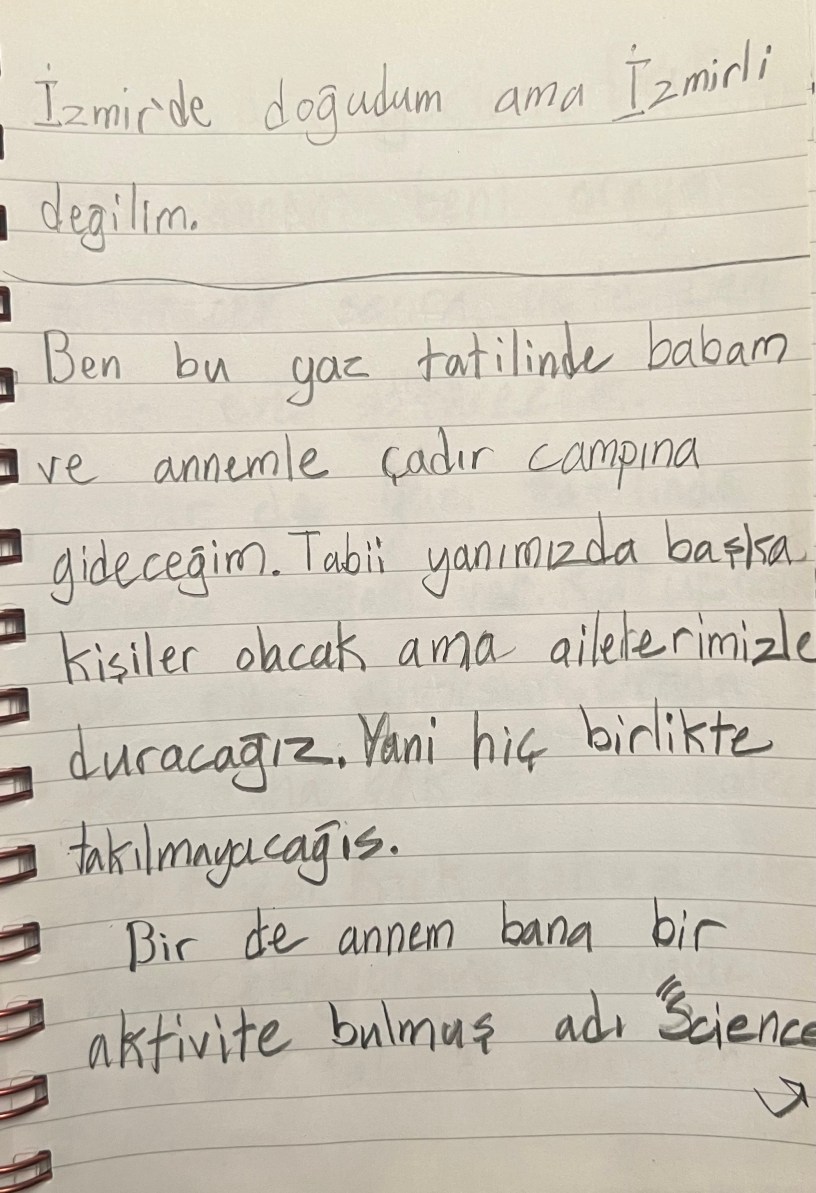 İzmir'de doğudum ama İzmirli
değilim.
Ben bu yaz tatilinde babam
ve annemle çadır campına
gideceğim. Tabii yanımızda başka
kişiler olacak ama ailelerimizle
duracağız. Yani hiç birlikte
takılmayacağıs.
Bir de annem bana bir
aktivite bulmuş adı "Science